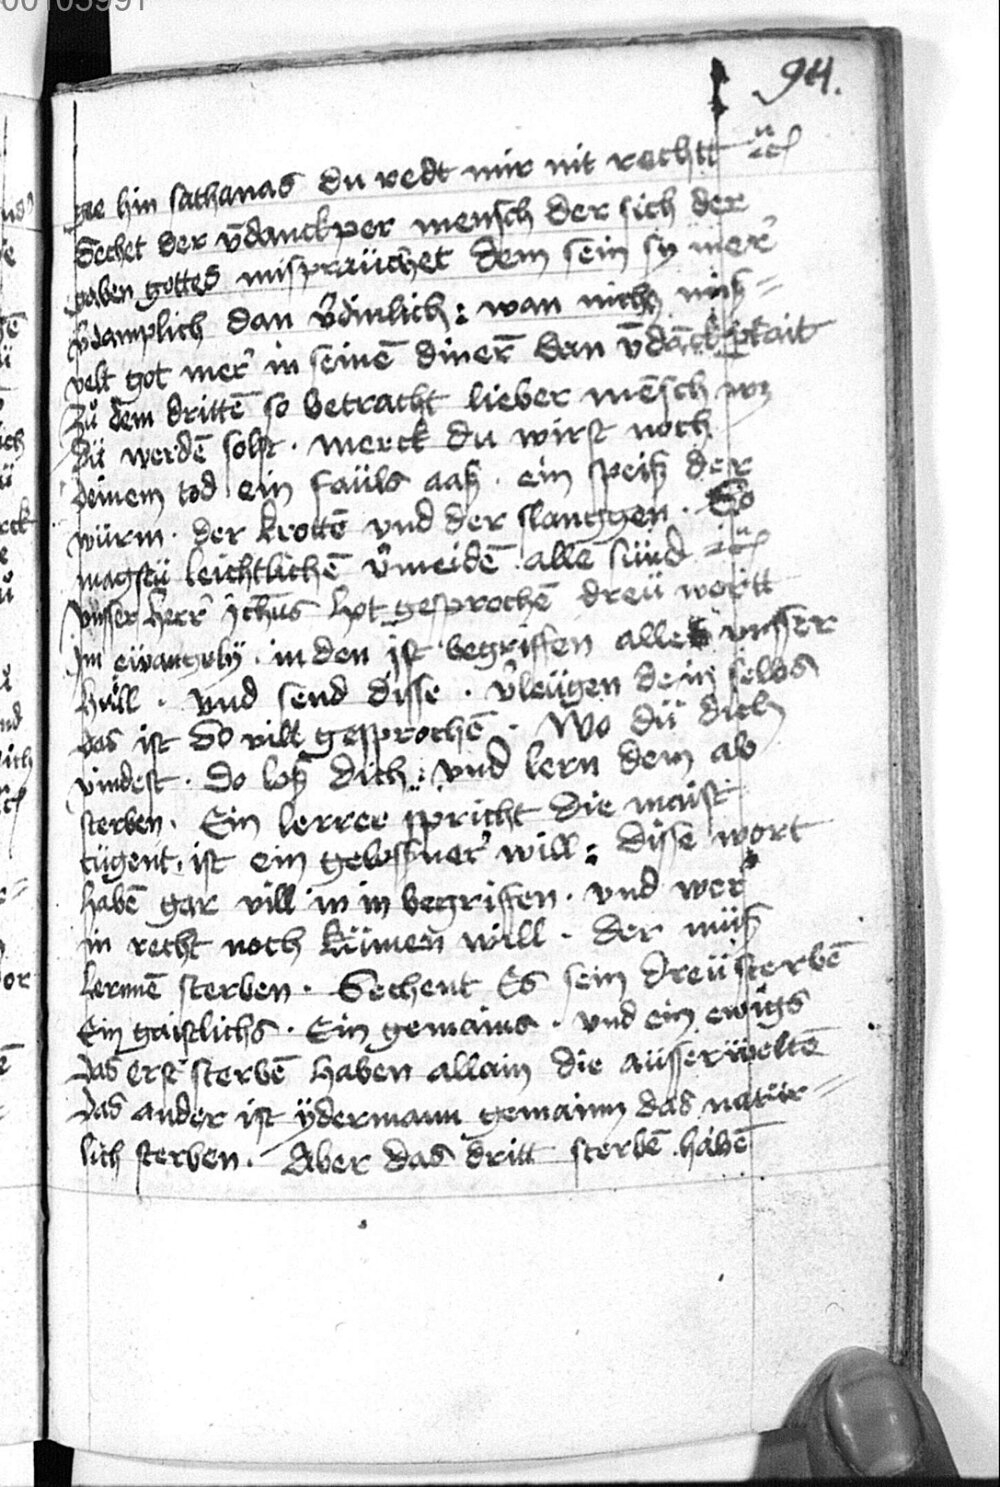 94.
gee hin sathanas du redt mir nit rechtt ꝛc
Sechet der v̄danckper mensch der sich der
gaben gottes mispraüchet dem sein sy mer
v̄damplich dan v̄dinlich : wan nichtz mis=
velt got mer in seinē dinerē dan v̄dāckpkait
Zů dem drittē so betracht lieber mēsch wz
dü werdē solst . merck du wirst noch
deinem tod ein faüls aaß . ein speiß der
würm . der krottē vnd der slanggen . So
magstü leichtlichē v̄meidē alle sünd ꝛc
vnsser herr jchūs hot gesprochē dreü wortt
jm ewangely . in den ist begriffen alles vnsser
hall . vnd send disse . v̄leügen dein selbs
das ist so vill gesprochē . Wo dü dich
vindest . Do loß dich : vnd lern dem ab
sterben . Ein lerrer spricht die maist
tügent . ist ein gelossner will : disse wort
habē gar vill in in begriffen . vnd wer
in recht noch kümen will . der müß
lernnē sterben . Sechent Es sein dreü sterbē
Ein gaistlichs . Ein gemains . vnd ein ewigs
Das erst sterbē haben allain die aüsserweltē
Das ander ist ydermann gemainn das natür=
lich sterben . Aber das dritt sterbē habē